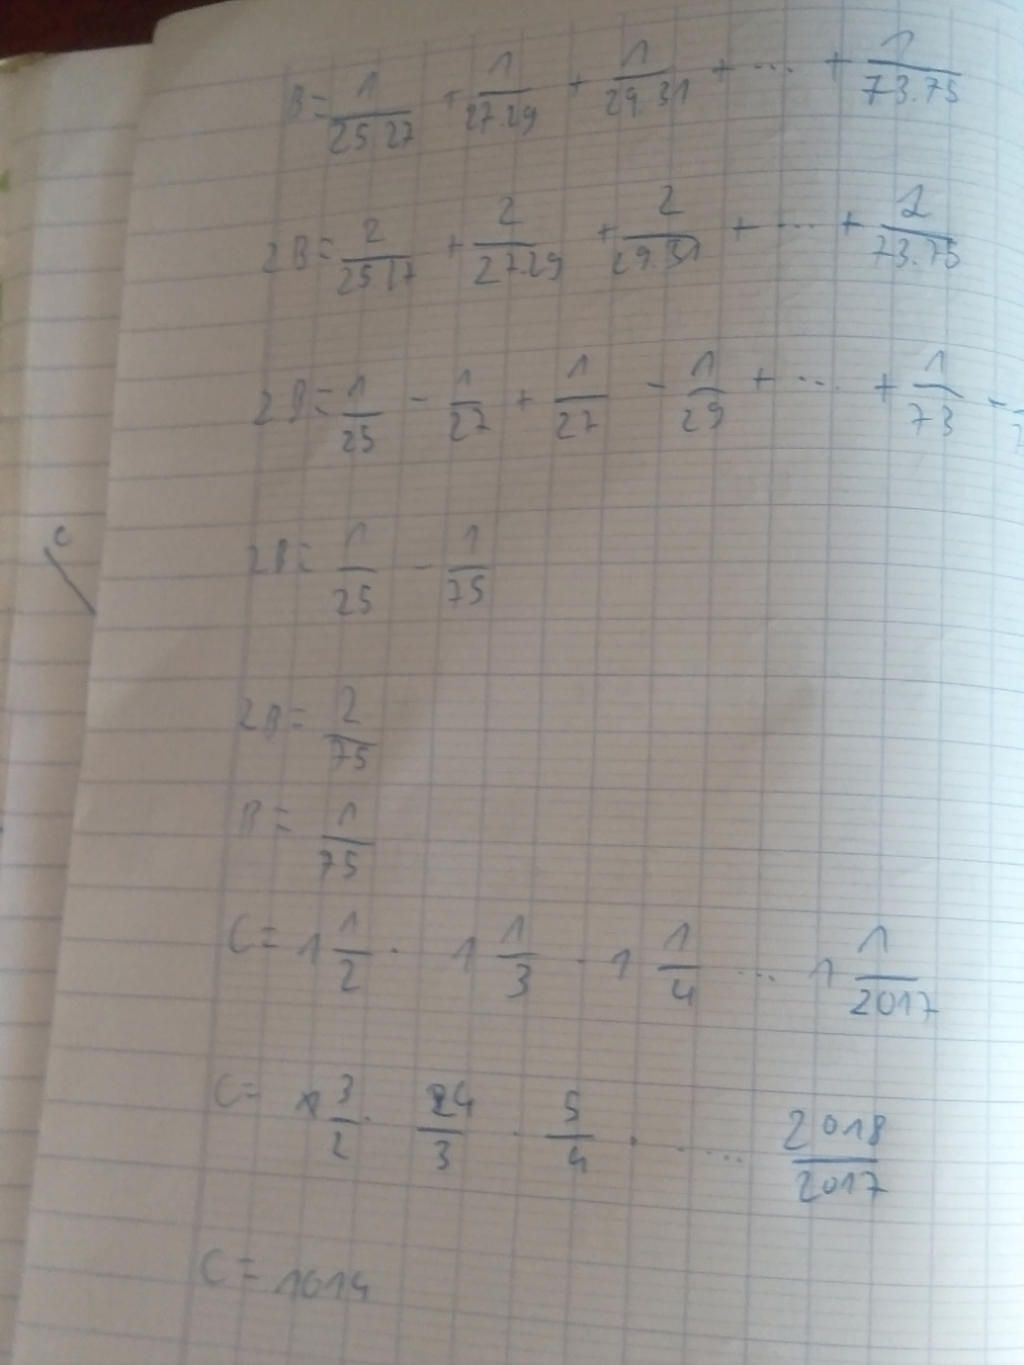 B = 1/25.27 + 1/27.29 + 1/29.31 + ... + 1/73.75
2B = 2/25.27 + 2/27.29 + 2/29.31 + ... + 2/73.75
2B = 1/25 - 1/27 + 1/27 - 1/29 + ... + 1/73 -
2B = 1/25 - 1/75
2B = 2/75
B = 1/75
C = 1 1/2 . 1 1/3 . 1 1/4 ... 1 1/2017
C = 3/2 . 4/3 . 5/4 . .... 2018/2017
C = 1014
c